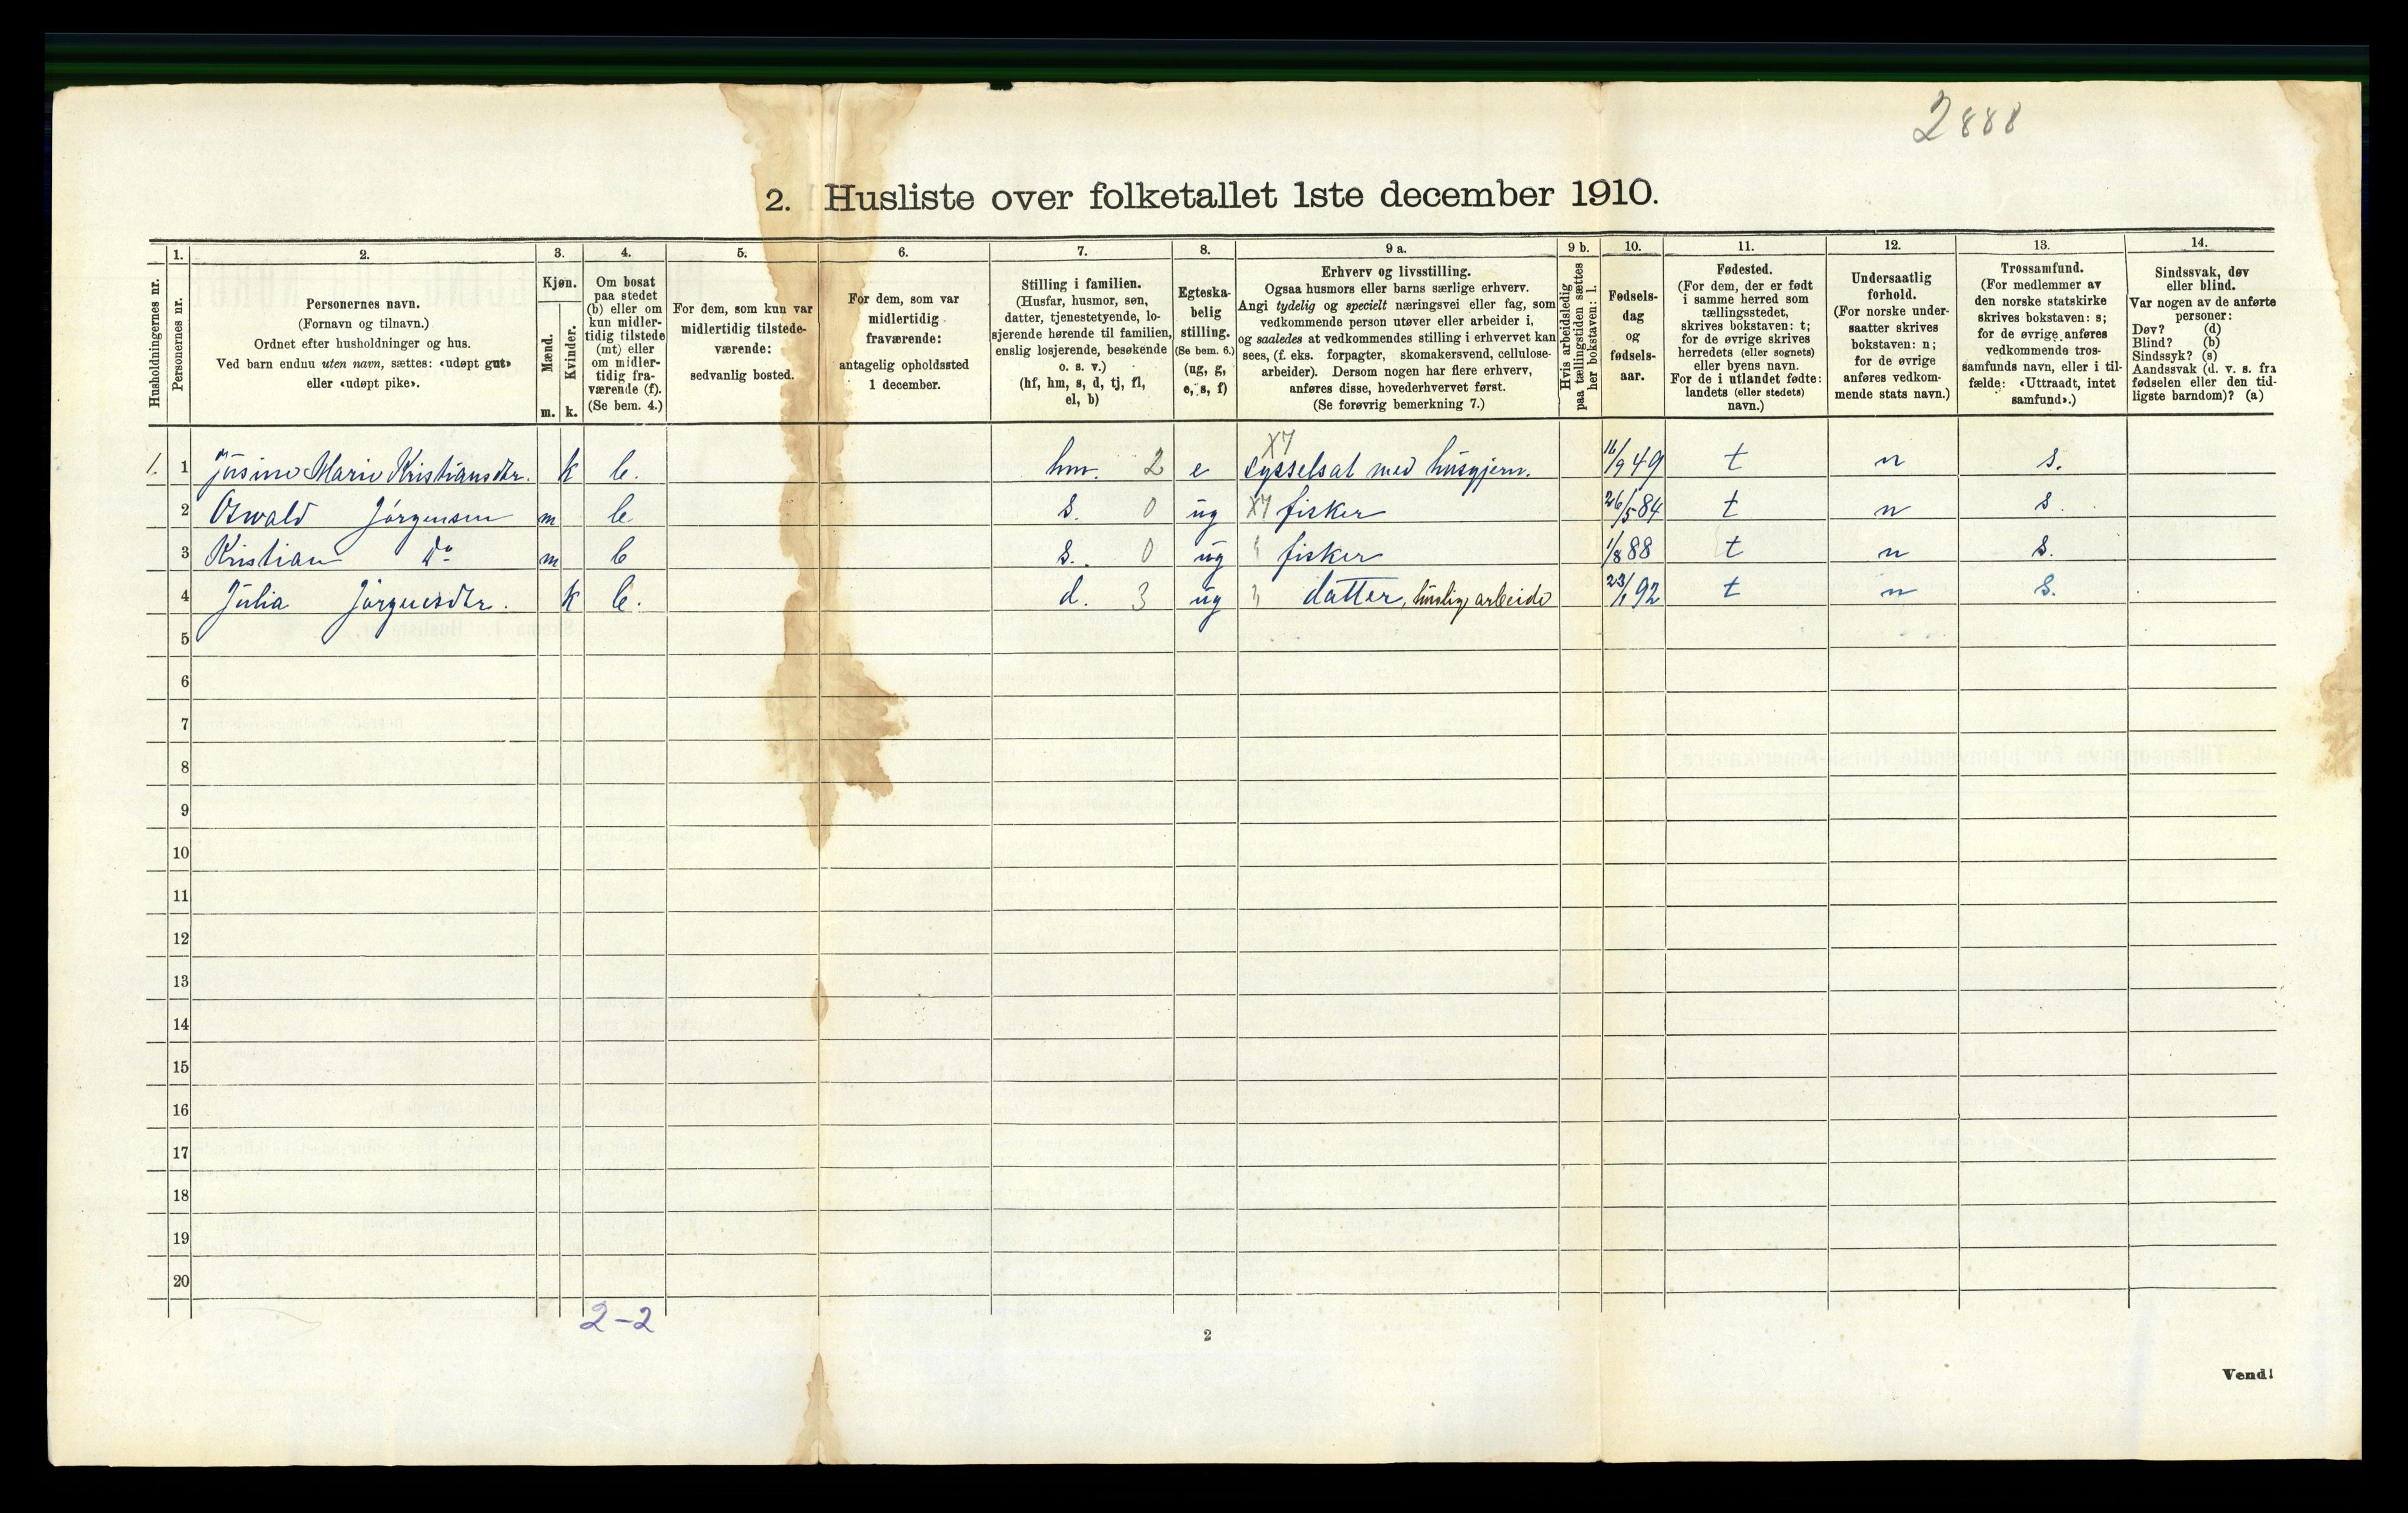 2888
2. Husliste over folketallet 1ste december 1910.
Husholdningernes nr.
1.
Personernes nr.
2.
Personernes navn.
(Fornavn og tilnavn.)
Ordnet efter husholdninger og hus.
Ved barn endnu uten navn, sættes: «udøpt gut»
eller «udøpt pike».
3.
Kjøn.
Mænd.
Kvinder.
m. k.
4.
Om bosat
paa stedet
(b) eller om
kun midler-
tidig tilstede
(mt) eller
om midler-
tidig fra-
værende (f).
(Se bem. 4.)
5.
For dem, som kun var
midlertidig tilstede-
værende:
sedvanlig bosted.
6.
For dem, som var
midlertidig
fraværende:
antagelig opholdssted
1 december.
7.
Stilling i familien.
(Husfar, husmor, søn,
datter, tjenestetyende, lo-
sjerende hørende til familien,
enslig losjerende, besøkende
o. s. v.)
(hf, hm, s, d, tj, fl,
el, b)
8.
Egteska-
belig
stilling.
(Se bem. 6.)
(ug, g,
e, s, f)
9 a.
Erhverv og livsstilling.
Ogsaa husmors eller barns særlige erhverv.
Angi tydelig og specielt næringsvei eller fag, som
vedkommende person utøver eller arbeider i,
og saaledes at vedkommendes stilling i erhvervet kan
sees, (f. eks. forpagter, skomakersvend, cellulose-
arbeider). Dersom nogen har flere erhverv,
anføres disse, hovederhvervet først.
(Se forøvrig bemerkning 7.)
9 b.
Hvis arbeidsledig
paa tællingstiden sættes
her bokstaven: l.
10.
Fødsels-
dag
og
fødsels-
aar.
11.
Fødested.
(For dem, der er født
i samme herred som
tællingsstedet,
skrives bokstaven: t;
for de øvrige skrives
herredets (eller sognets)
eller byens navn.
For de i utlandet fødte:
landets (eller stedets)
navn.)
12.
Undersaatlig
forhold.
(For norske under-
saatter skrives
bokstaven: n;
for de øvrige
anføres vedkom-
mende stats navn.)
13.
Trossamfund.
(For medlemmer av
den norske statskirke
skrives bokstaven: s;
for de øvrige anføres
vedkommende tros-
samfunds navn, eller i til-
fælde: «Uttraadt, intet
samfund».)
14.
Sindssvak, døv
eller blind.
Var nogen av de anførte
personer:
Døv? (d)
Blind? (b)
Sindssyk? (s)
Aandssvak (d. v. s. fra
fødselen eller den tid-
ligste barndom)? (a)
X7
1. 1 Jusine Marie Kristiansdtr. k b. hm. 2 e sysselsat med husgjern. 16/9 49 t n s.
2 Oswald Jørgensen m b s. 0 ug X7 fisker 26/5 84 t n s.
3 Kristian Do m b s. 0 ug " fisker 1/8 88 t n s.
4 Julia Jørgensdtr. k b. d. 3 ug " datter, huslig arbeide 23/1 92 t n s.
5
6
7
8
9
10
11
12
13
14
15
16
17
18
19
20
2-2
2
Vend!